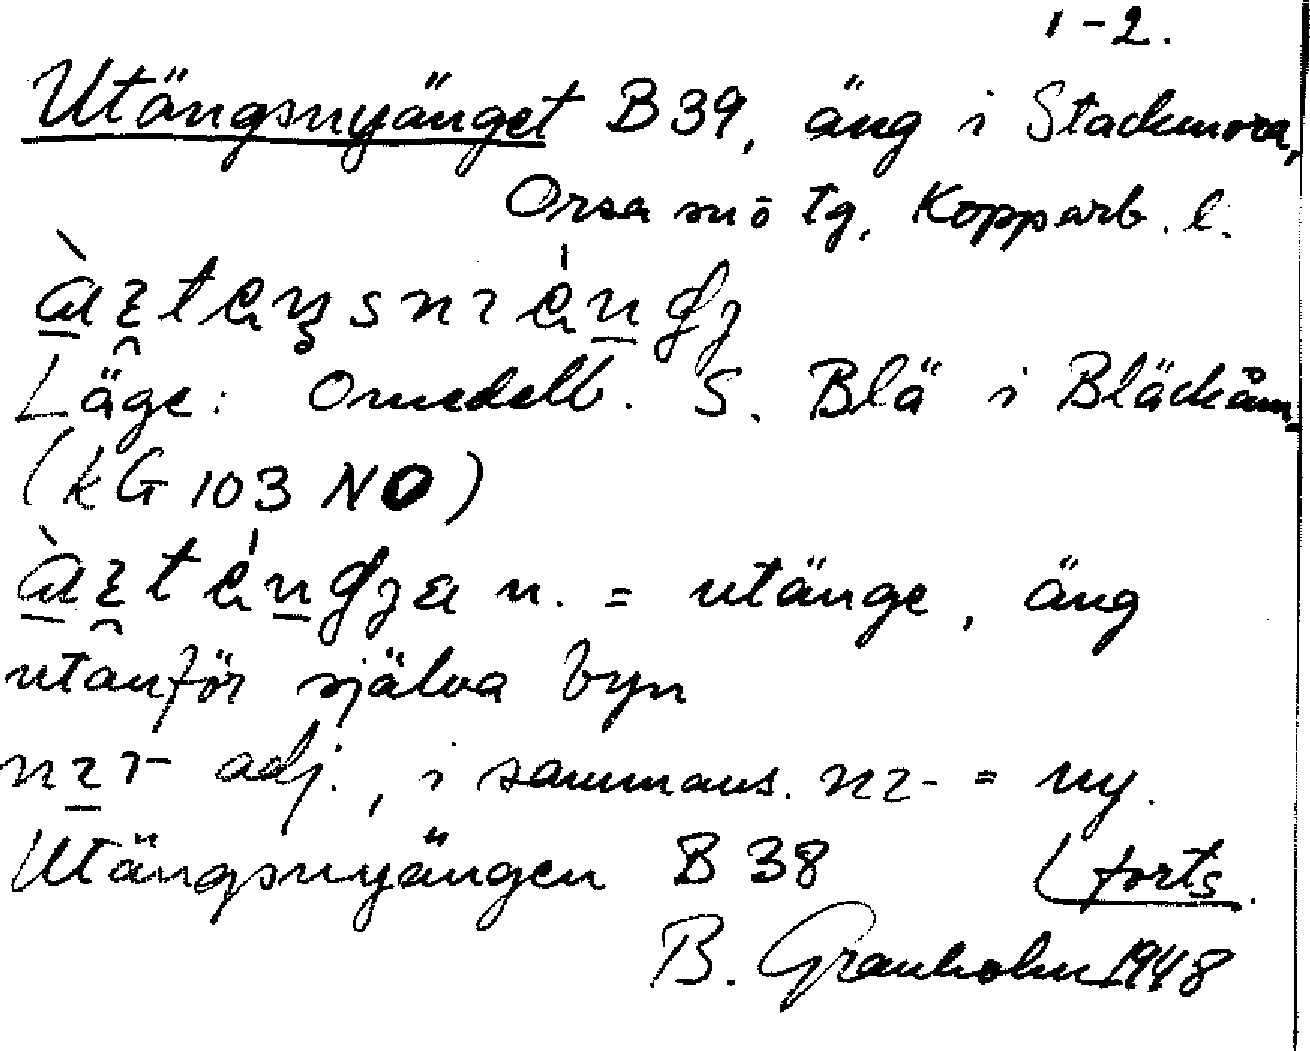 1-2.
Utängsnyänget B 39, äng i Stackmora,
Orsa sn ö tg, Kopparb. l.
Läge: Omedelb. S. Blä i Bläckåsen
(KG 103 NO)
n. = utänge, äng
utanför själva byn
adj., i sammans. = ny.
Utängsnyängen B 38 (forts.
B. Granholm 1948